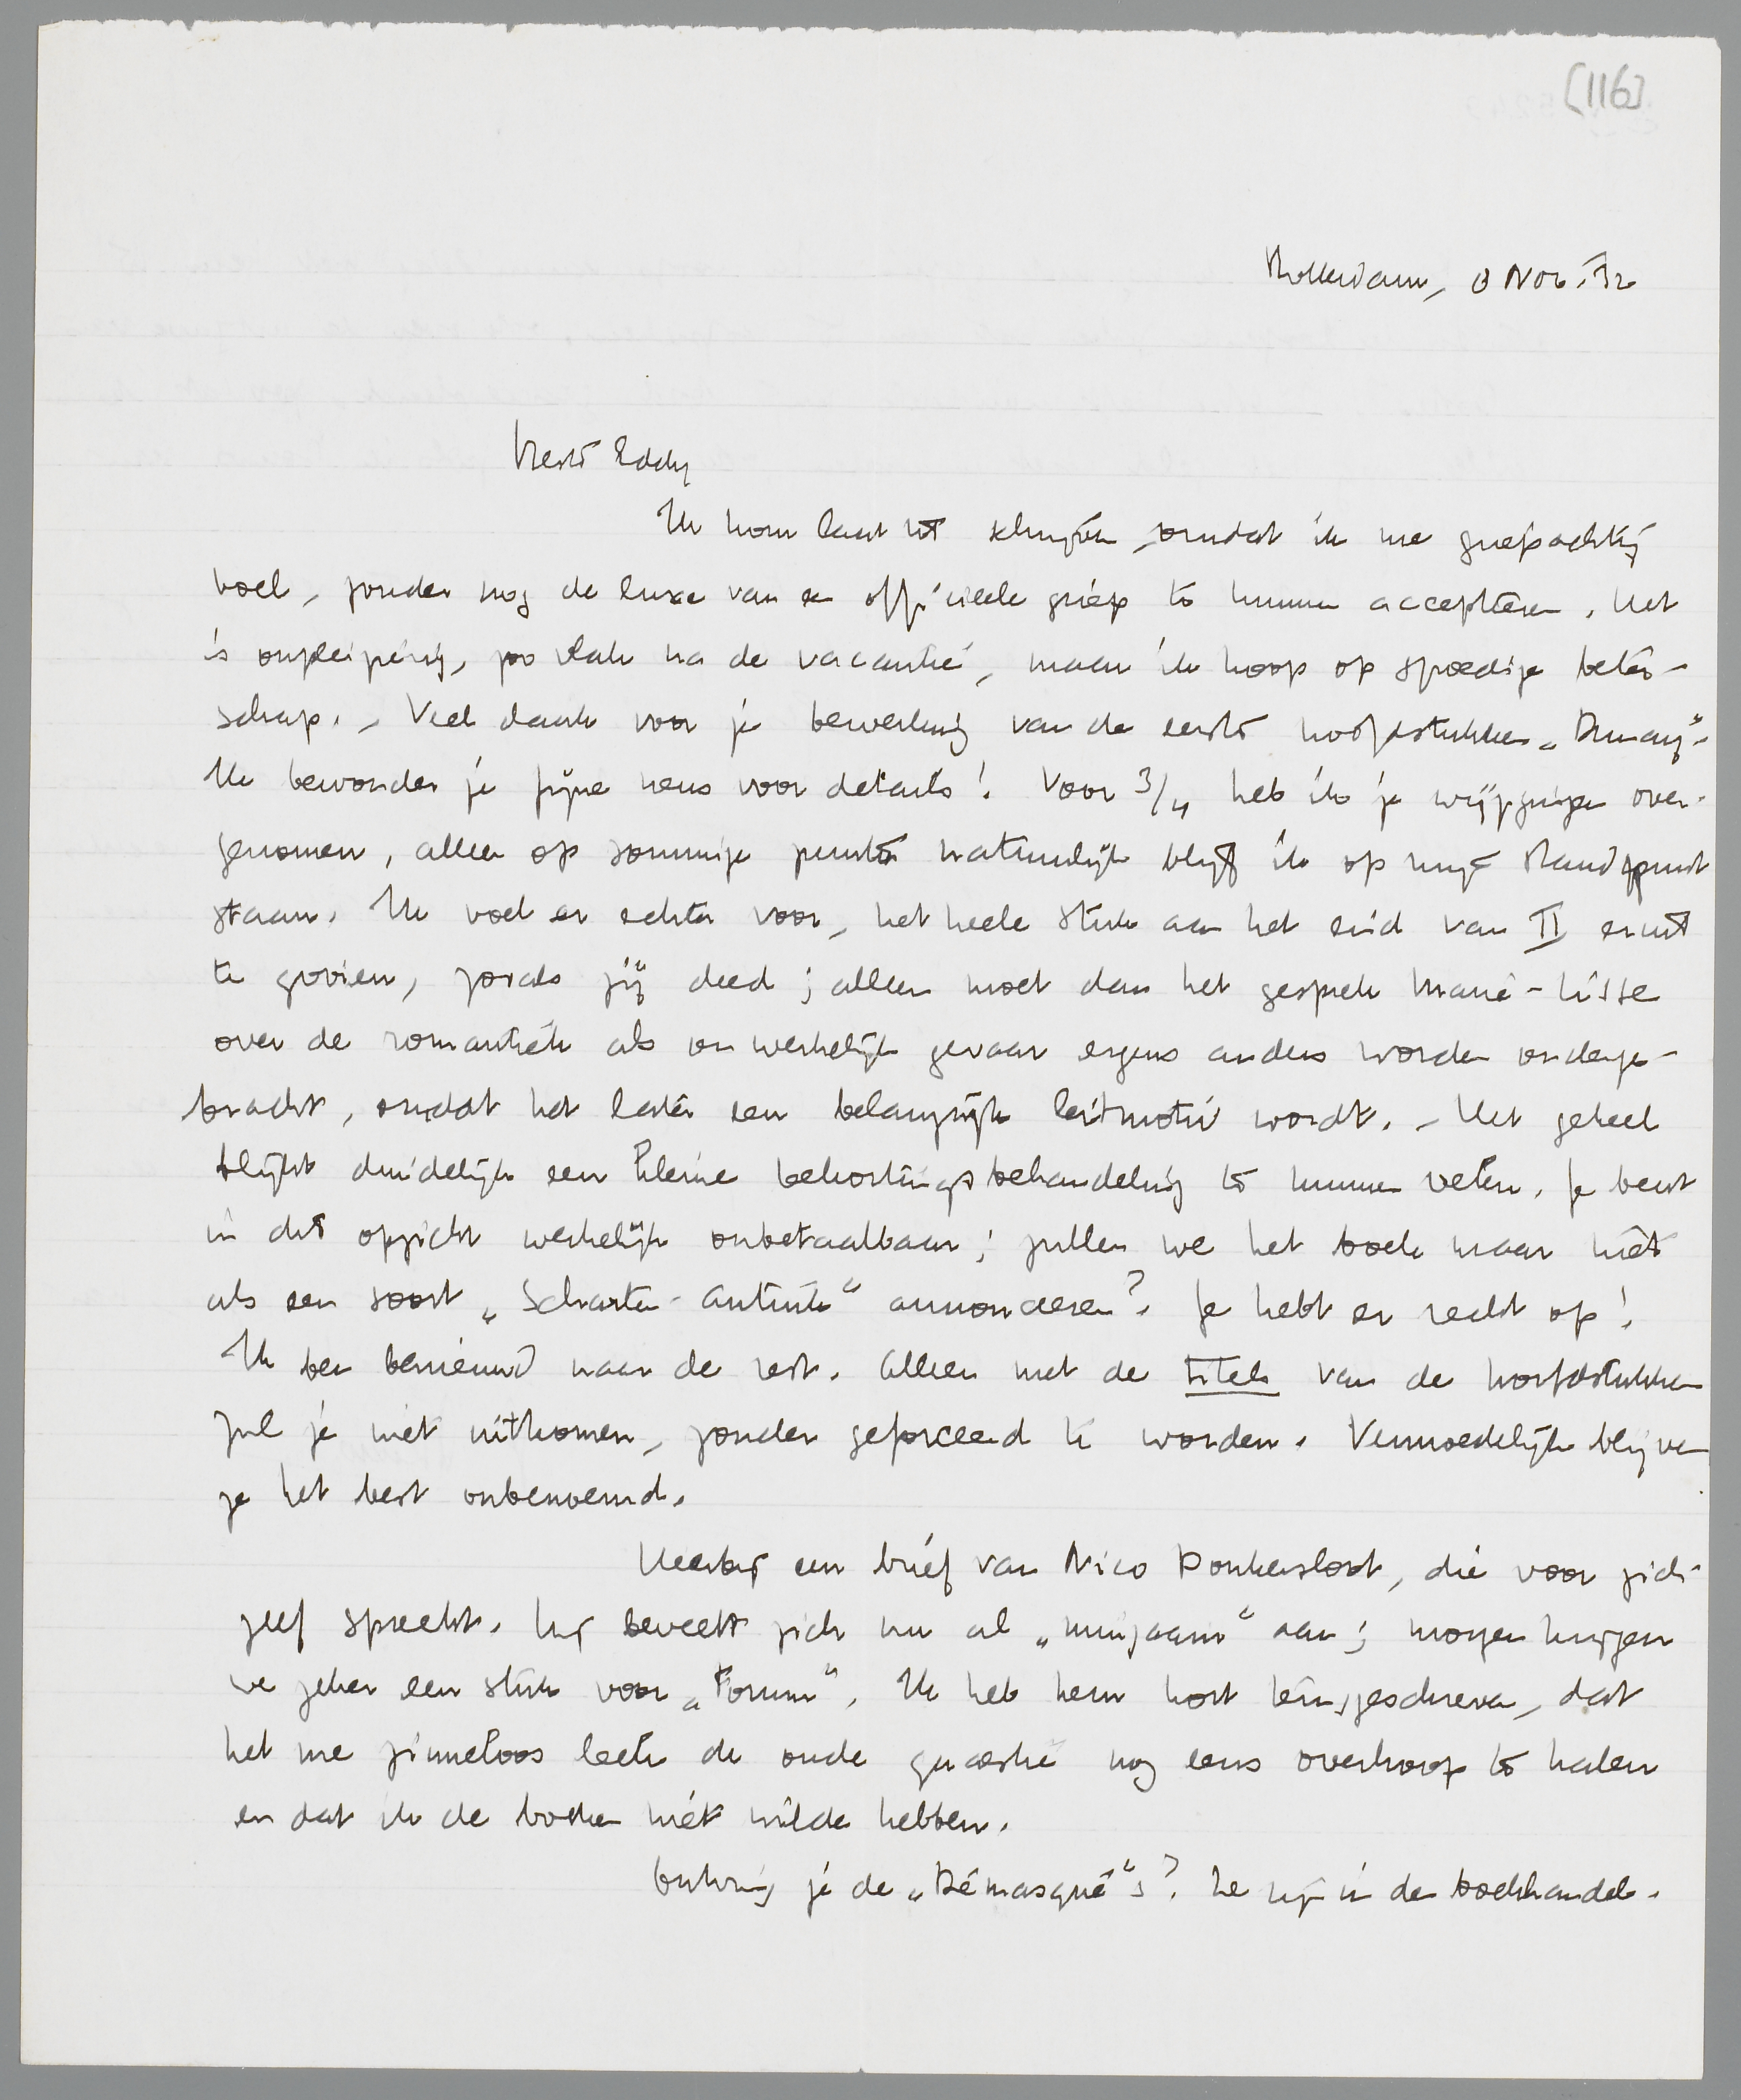 [116]
Rotterdam, 8 Nov. '32
Beste Eddy
Ik kom laat tot schrijven, omdat ik me griepachtig
voel, zonder nog de luxe van een officieele griep te kunnen accepteeren. Het
is onpleizierig, zoo vlak na de vacantie, maar ik hoop op spoedige beter-
schap. – Veel dank voor je bewerking van de eerste hoofdstukken „Dumay".
Ik bewonder je fijne neus voor details! Voor 3/4 heb ik je wijzigingen over-
genomen, alleen op sommige punten natuurlijk blijf ik op mijn standpunt
staan. Ik voel er echter voor, het heele stuk aan het eind van II eruit
te gooien, zooals jij deed; alleen moet dan het gesprek Marie-Lisse
over de romantiek als onwerkelijk gevaar ergens anders worden onderge-
bracht, omdat het later een belangrijk leitmotiv wordt. – Het geheel
blijkt duidelijk een kleine bekortingsbehandeling te kunnen velen. Je bent
in dit opzicht werkelijk onbetaalbaar; zullen we het boek maar niet
als een soort „Scharten-Antink" annonceeren? Je hebt er recht op!
Ik ben benieuwd naar de rest. Alleen met de titels van de hoofdstukken
zul je niet uitkomen, zonder geforceerd te worden. Vermoedelijk blijven
ze het best onbenoemd.
Hierbij een brief van Nico Donkersloot, die voor zich-
zelf spreekt. Hij beveelt zich nu al „minzaam" aan; morgen krijgen
we zeker een stuk voor „Forum". Ik heb hem kort teruggeschreven, dat
het me zinneloos leek de oude quaestie nog eens overhoop te halen
en dat ik de boeken niet wilde hebben.
Ontving je de „Démasqué"s? Ze zijn in den boekhandel.